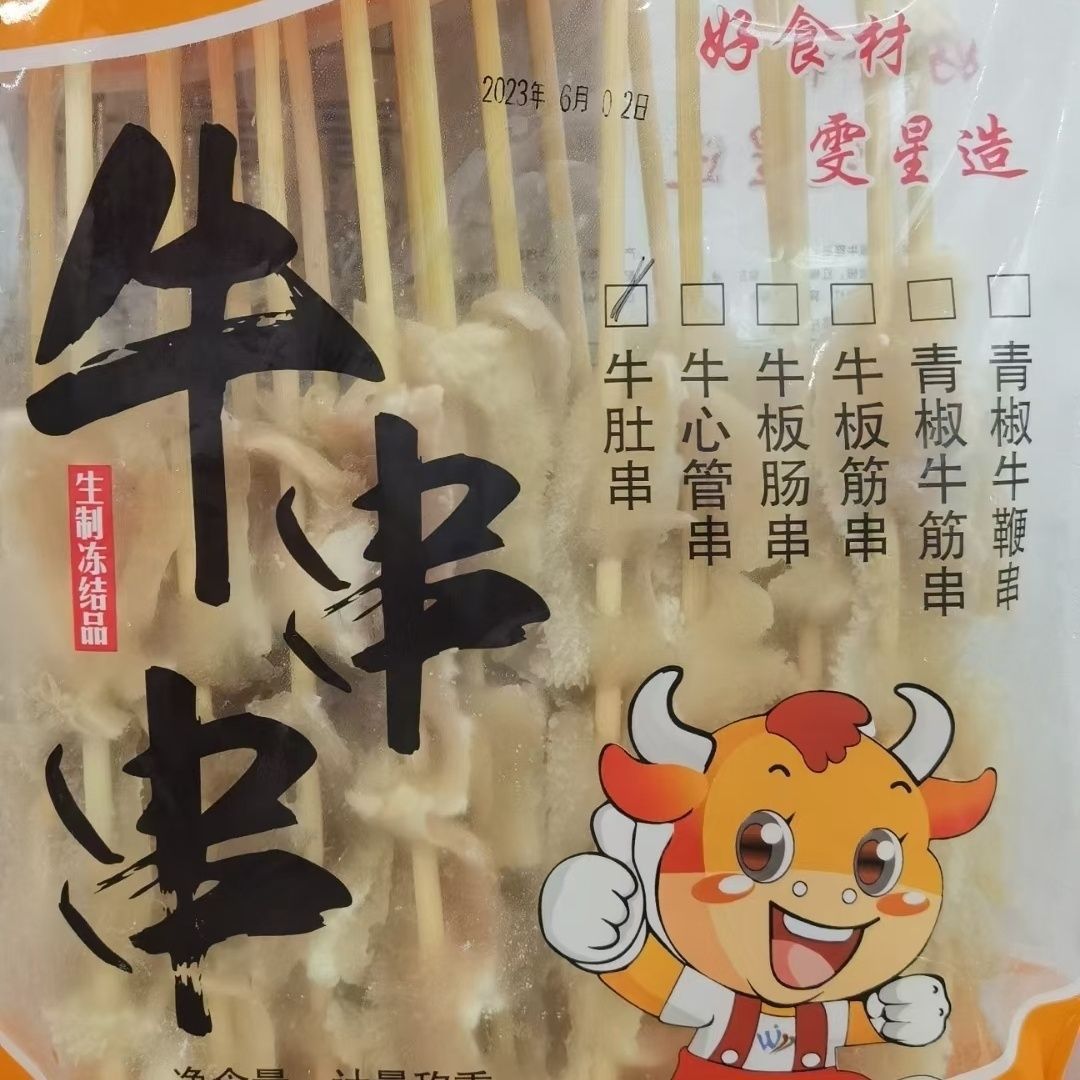 好食材
雯星造
2023年 6月 02日
牛串串
生制冻结品
牛肚串
牛心管串
牛板肠串
牛板筋串
青椒牛筋串
青椒牛鞭串
净含量 计量称重